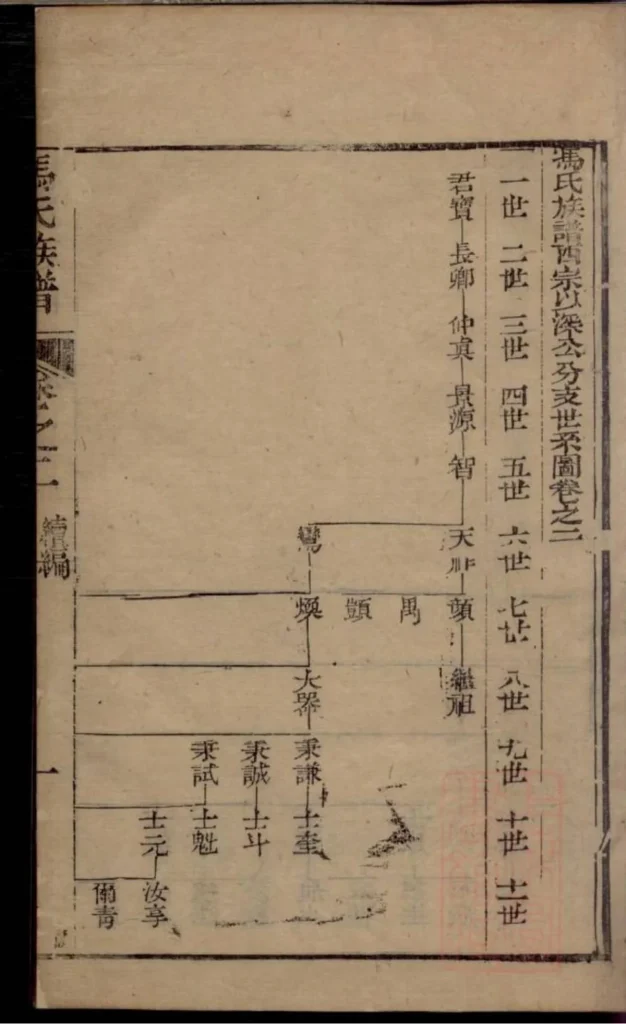 馮氏族譜西宗以深公分支世系圖卷之二
一世 二世 三世 四世 五世 六世 七世 八世 九世 十世 十一世
君寶 長卿 仲真 景源 智 天 頭 繼祖
禺
顗
鸞 煥 大器 秉謙 士奎
秉誠 士斗
秉試 士魁
士元 汝享
爾青
馮氏族譜 卷之二 續編 一